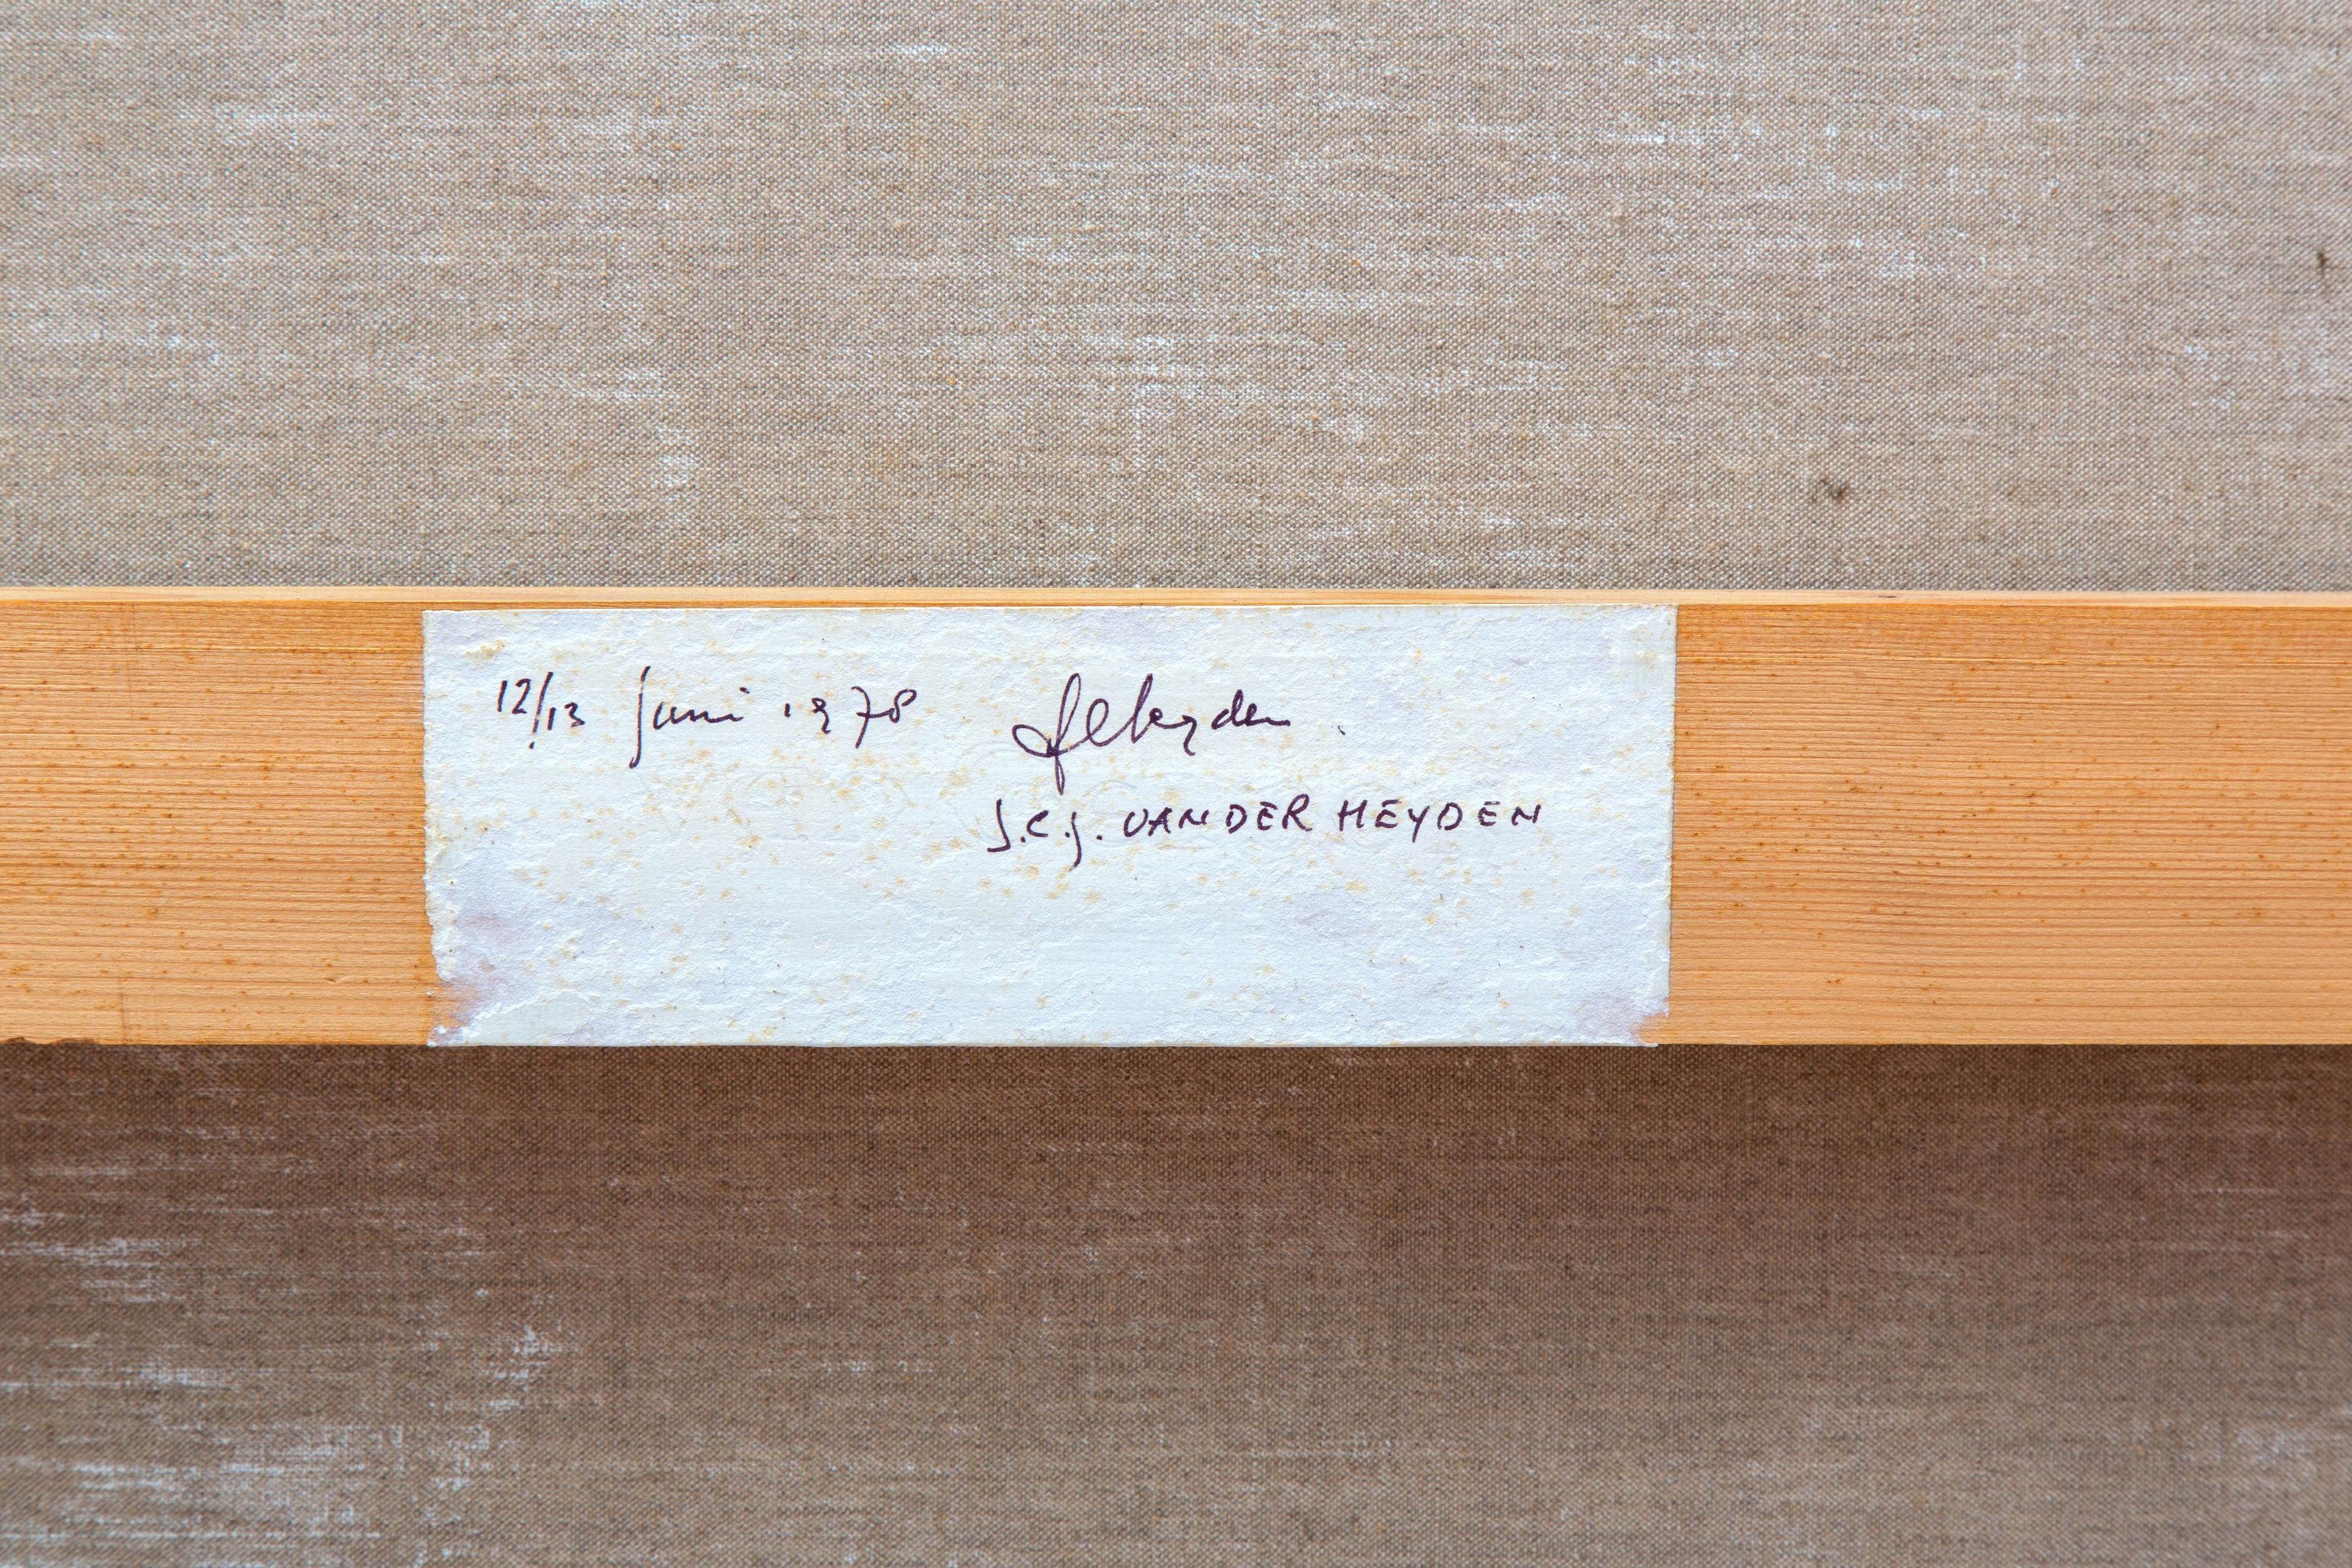 12/13 juni 1978 JCJheyden
J.C.J. VAN DER HEYDEN